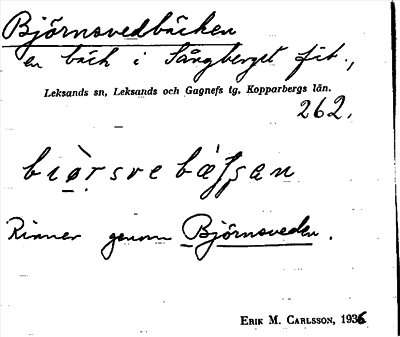 Björnsvedbäcken
en bäck i Sångberget fit.,
Leksands sn, Leksands och Gagnefs tg, Kopparbergs län.
262.
Rinner genom Björnsveden.
ERIK M. CARLSSON, 1936